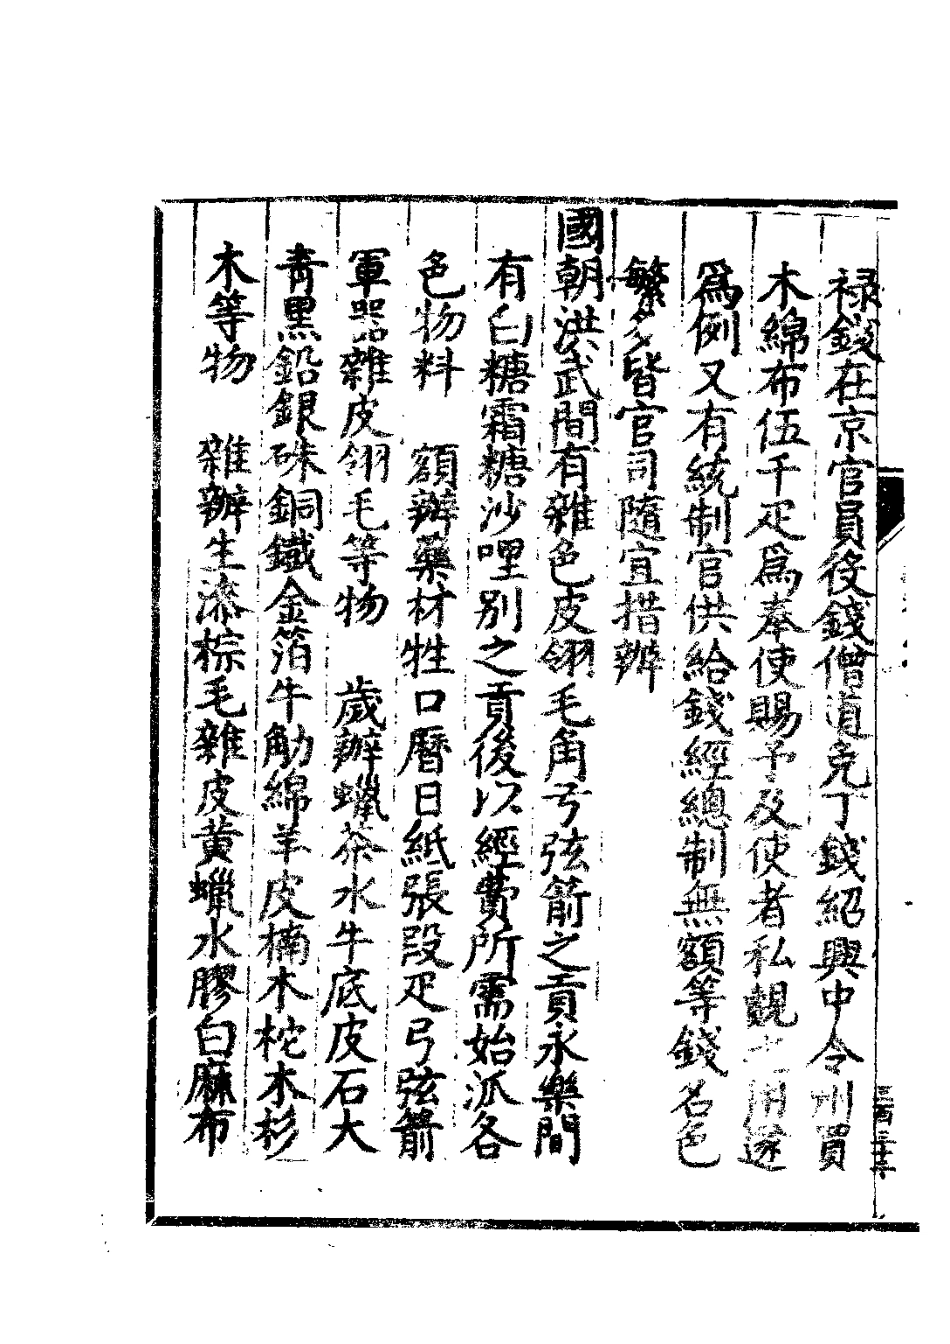 祿錢在京官員役錢僧道免丁錢紹興中令州買
木綿布伍千疋爲奉使賜予及使者私覿之用遂
爲例又有統制官供給錢經總制無額等錢名色
繁多皆官司隨宜措辦
國朝洪武間有雜色皮翎毛角弓弦箭之貢永樂間
有白糖霜糖沙哩別之貢後以經費所需始派各
色物料 額辦藥材牲口曆日紙張段疋弓弦箭
軍器雜皮翎毛等物 歲辦蠟茶水牛底皮石大
青黑鉛銀硃銅鐵金箔牛觔綿羊皮楠木柁木杉
木等物 雜辦生漆棕毛雜皮黄蠟水膠白麻布